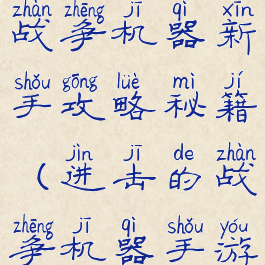 zhàn zhēng jī qì xīn
战争机器新
shǒu gōng lüè mì jí
手攻略秘籍
jìn jī de zhàn
(进击的战
zhēng jī qì shǒu yóu
争机器手游